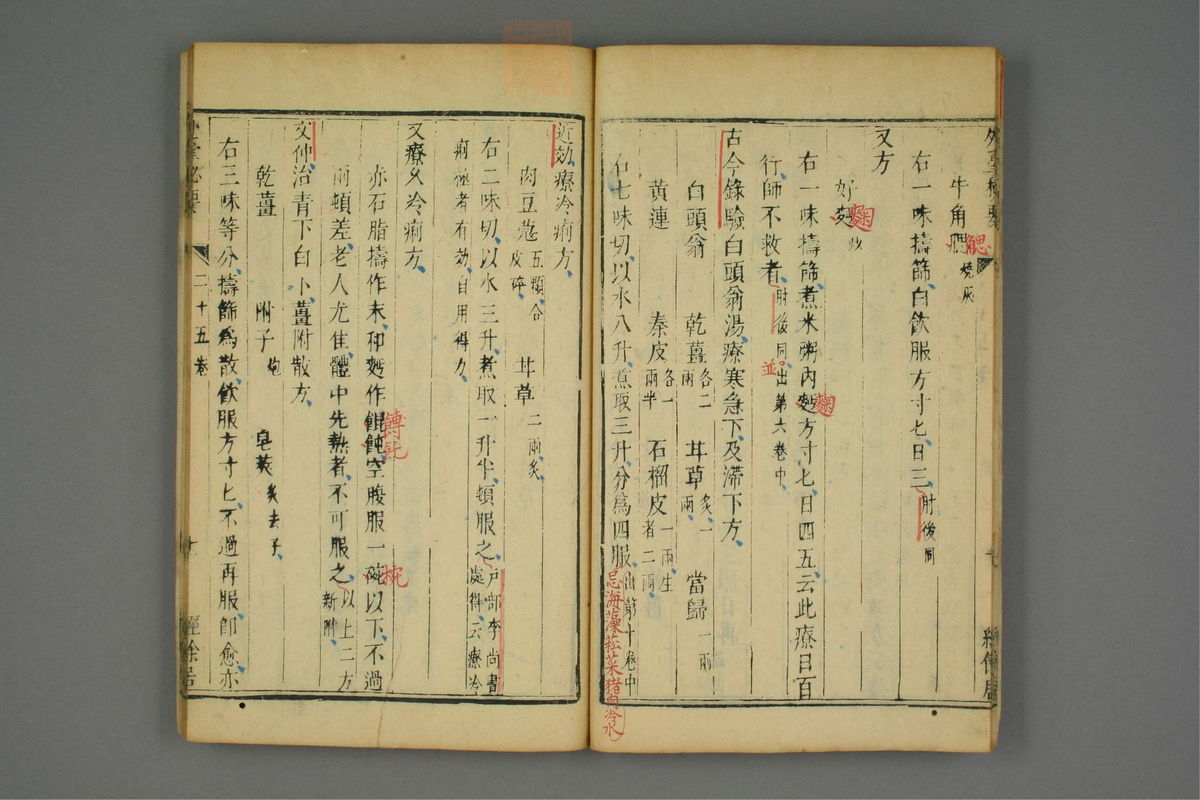 牛角䚡燒灰
右一味擣篩白飲服方寸匕日三肘後同
又方
好麴炒
右一味擣篩煮米粥內麴方寸匕日四五云此療日百
行師不救者肘後同出第六卷中
古今錄驗白頭翁湯療寒急下及滯下方
白頭翁 乾薑各二兩 甘草炙一兩 當歸一兩
黃連 秦皮各一兩半 石榴皮一兩生者二兩
右七味切以水八升煮取三升分爲四服出第十卷中
忌海藻菘菜猪肉冷水
近効療冷痢方
肉豆蔻五顆合皮碎 甘草二兩炙
右二味切以水三升煮取一升半頓服之戶部李尚書處得云療冷
痢極者有効自用得力
又療久冷痢方
赤石脂擣作末和麪作餛飩空腹服一碗以下不過
兩頓差老人尤佳體中先熱者不可服之以上二方新附
文仲治青下白下薑附散方
乾薑 附子炮 皂莢炙去子
右三味等分擣篩爲散飲服方寸匕不過再服卽愈亦
二十五卷
經餘居
䚡
麴
麴
並
餺飥
椀